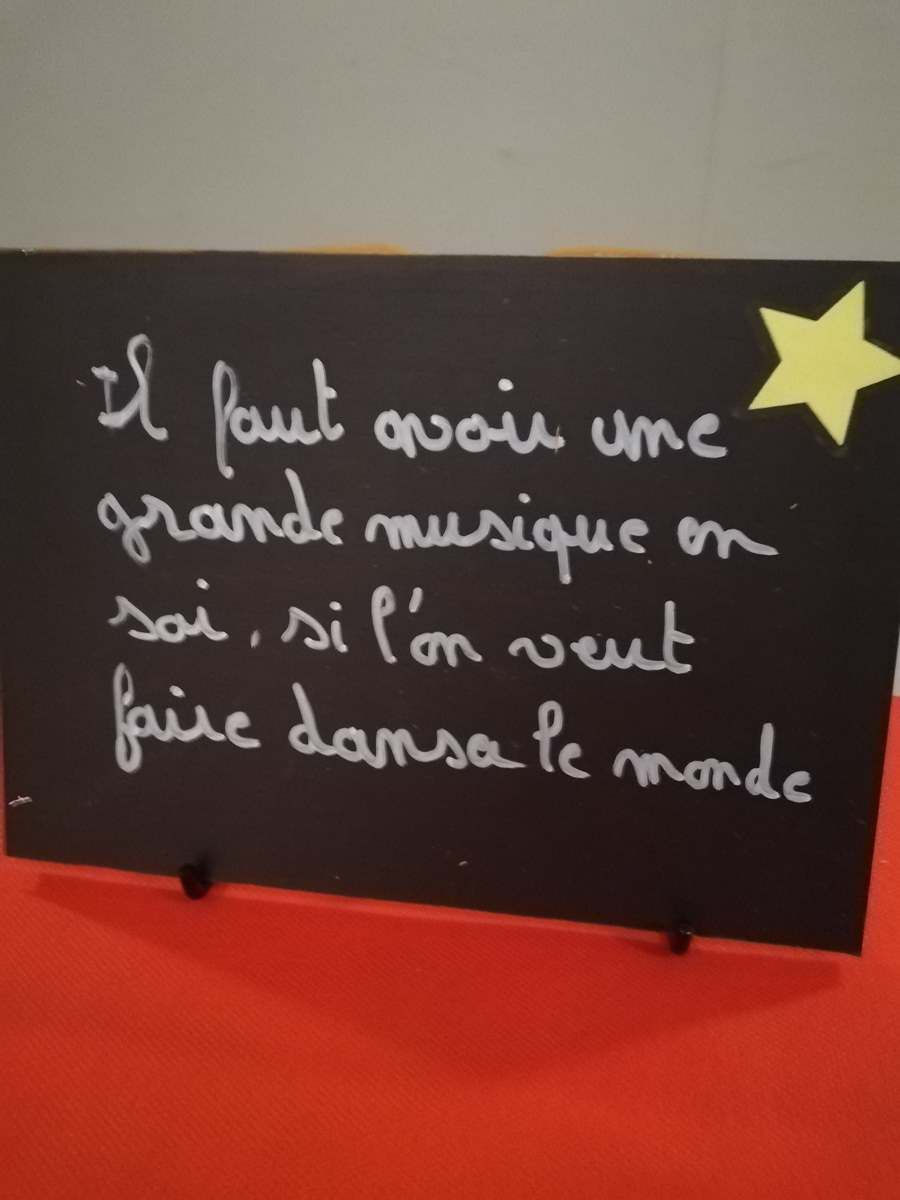 Il faut avoir une
grande musique en
soi, si l'on veut
faire danser le monde